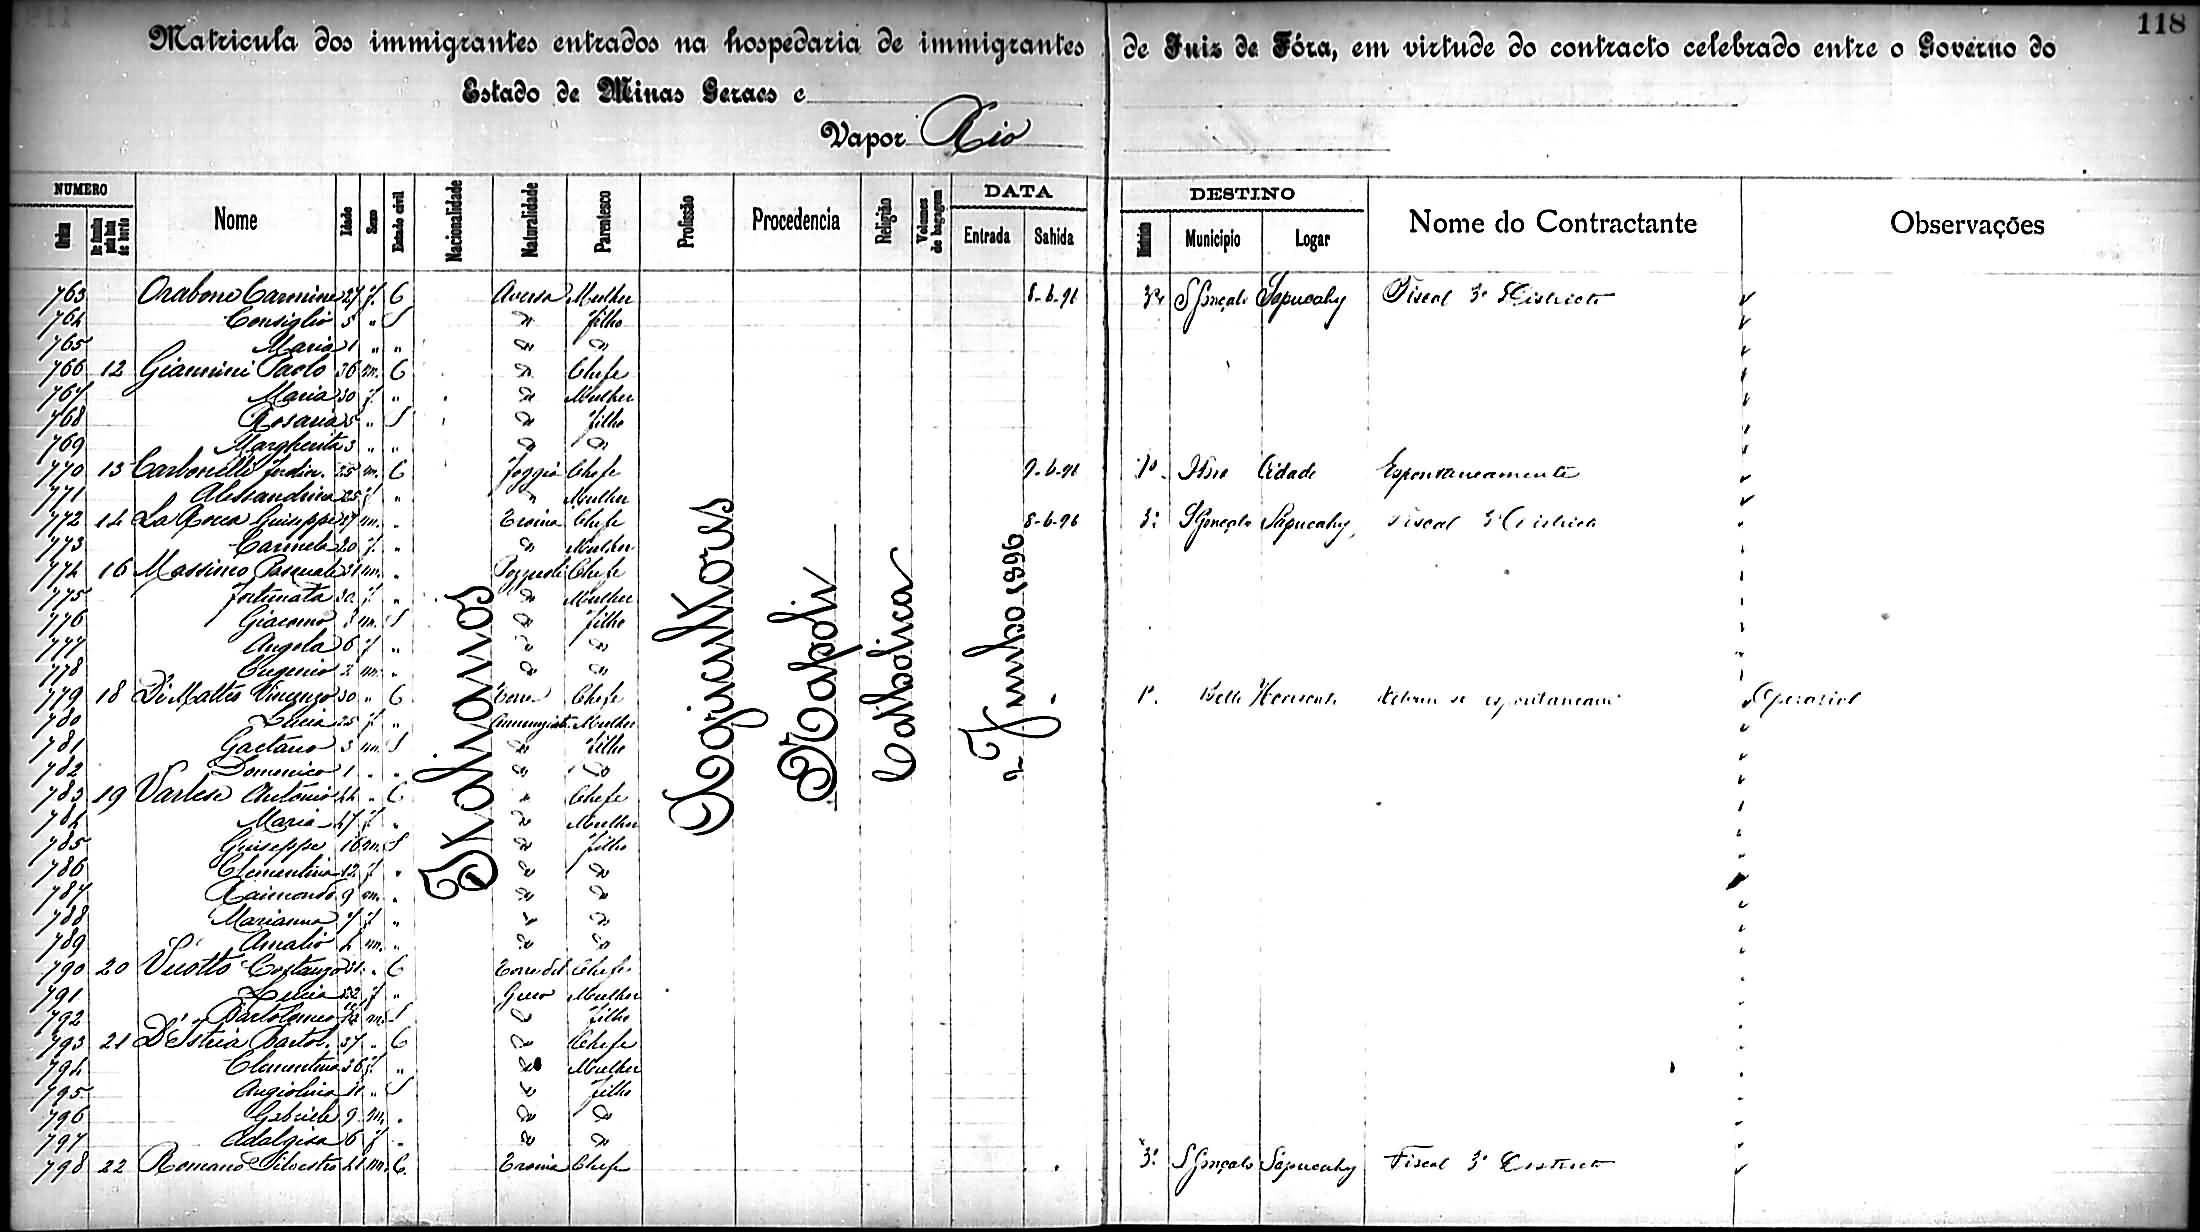 118
Matricula dos immigrantes entrados na hospedaria de immigrantes de Juiz de Fóra, em virtude do contracto celebrado entre o Governo do
Estado de Minas Geraes e
Vapor Rio
NUMERO DATA DESTINO
Ordem Nome Idade Sexo Estado civil Nacionalidade Naturalidade Parentesco Profissão Procedencia Religião Volumes de bagagem Entrada Sahida Districto Municipio Logar Nome do Contractante Observações
Italianos Agricultores Napoli Catholica 2 Junho 1896
763 Orabona Carmine 27 f. C Aversa Mulher 8-6-96 3º S Gonçalo Sapucahy Fiscal 3º Districto
764 Consiglio 5 " S " filho
765 Maria 1 " " " "
766 12 Giannini Paolo 36 m. C " Chefe
767 Maria 30 f. " " Mulher
768 Rosaria 5 " S " filho
769 Margherita 3 " " " "
770 13 Carbonelli 25 m. C Foggia Chefe 9-6-96 1º Cidade Espontaneamente
771 Alessandrina 25 f " " Mulher
772 14 La Rocca Giuseppe 27 m. " Troina Chefe 8-6-96 3º S Gonçalo Sapucahy Fiscal 3º Districto
773 Carmela 20 f. " " Mulher
774 16 Massimo Pasquale 31 m. " Pozzuoli Chefe
775 Fortunata 30 f. " " Mulher
776 Giacomo 8 m. S " filho
777 Angela 6 f " " "
778 Eugenio 2 m. " " "
779 18 Di Matteo Vincenzo 30 " C Torre Chefe 1º Bello Horisonte Retirou se espontaneam Operario
780 Lucia 25 f. " Annunziata Mulher
781 Gaetano 3 m. S " filho
782 Domenico 1 " " " "
783 19 Varlese Antonio 44 " C " Chefe
784 Maria 47 f. " " Mulher
785 Giuseppe 16 m. S " filho
786 Clementina 12 f " " "
787 Raimondo 9 m. " " "
788 Marianna 7 f " " "
789 Amalio 4 m. " " "
790 20 Costanzo 31 " C Torre del Chefe
791 Lucia 22 f " Greco Mulher
792 Bartolomeo m. S " filho
793 21 Bartol. 37 " C " Chefe
794 Clementina 36 f. " " Mulher
795 Angiolina 11 " S " filho
796 Gabriele 9 m. " " "
797 Adalgisa 6 f " " "
798 22 Romano Silvestro 41 m. C. Troina Chefe 3º S Gonçalo Sapucahy Fiscal 3º Districto